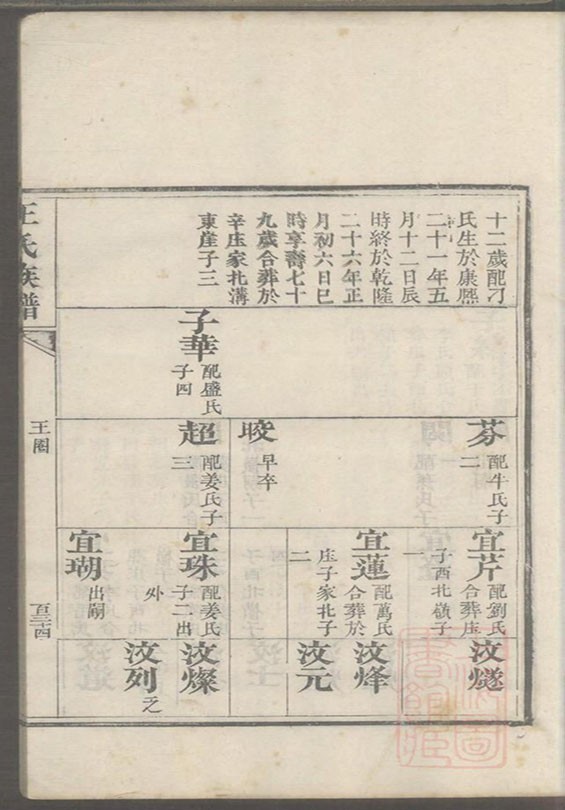 十二歲配刁
氏生於康熙
二十一年五
月十二日辰
時終於乾隆
二十六年正
月初六日巳
時享壽七十
九歲合葬於
辛庄家北溝
東崖子三
子華
配盛氏
子四
芬
配牛氏子
二
晈
早卒
超
配姜氏子
三
宜芹
配劉氏
合葬庄
子西北嶺子
一
宜蓮
配萬氏
合葬於
庄子家北子
二
宜珠
配姜氏
子二出
外
宜瑚
出嗣
汶燧
汶烽
汶元
汶燦
汶列
之
王氏族譜
王圈
百三十四